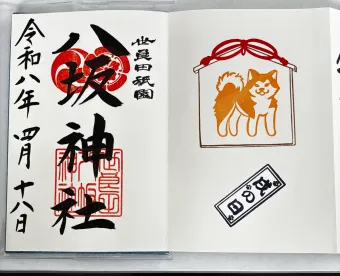 世良田祇園
八坂神社
令和八年 四月 十八日
戌の日